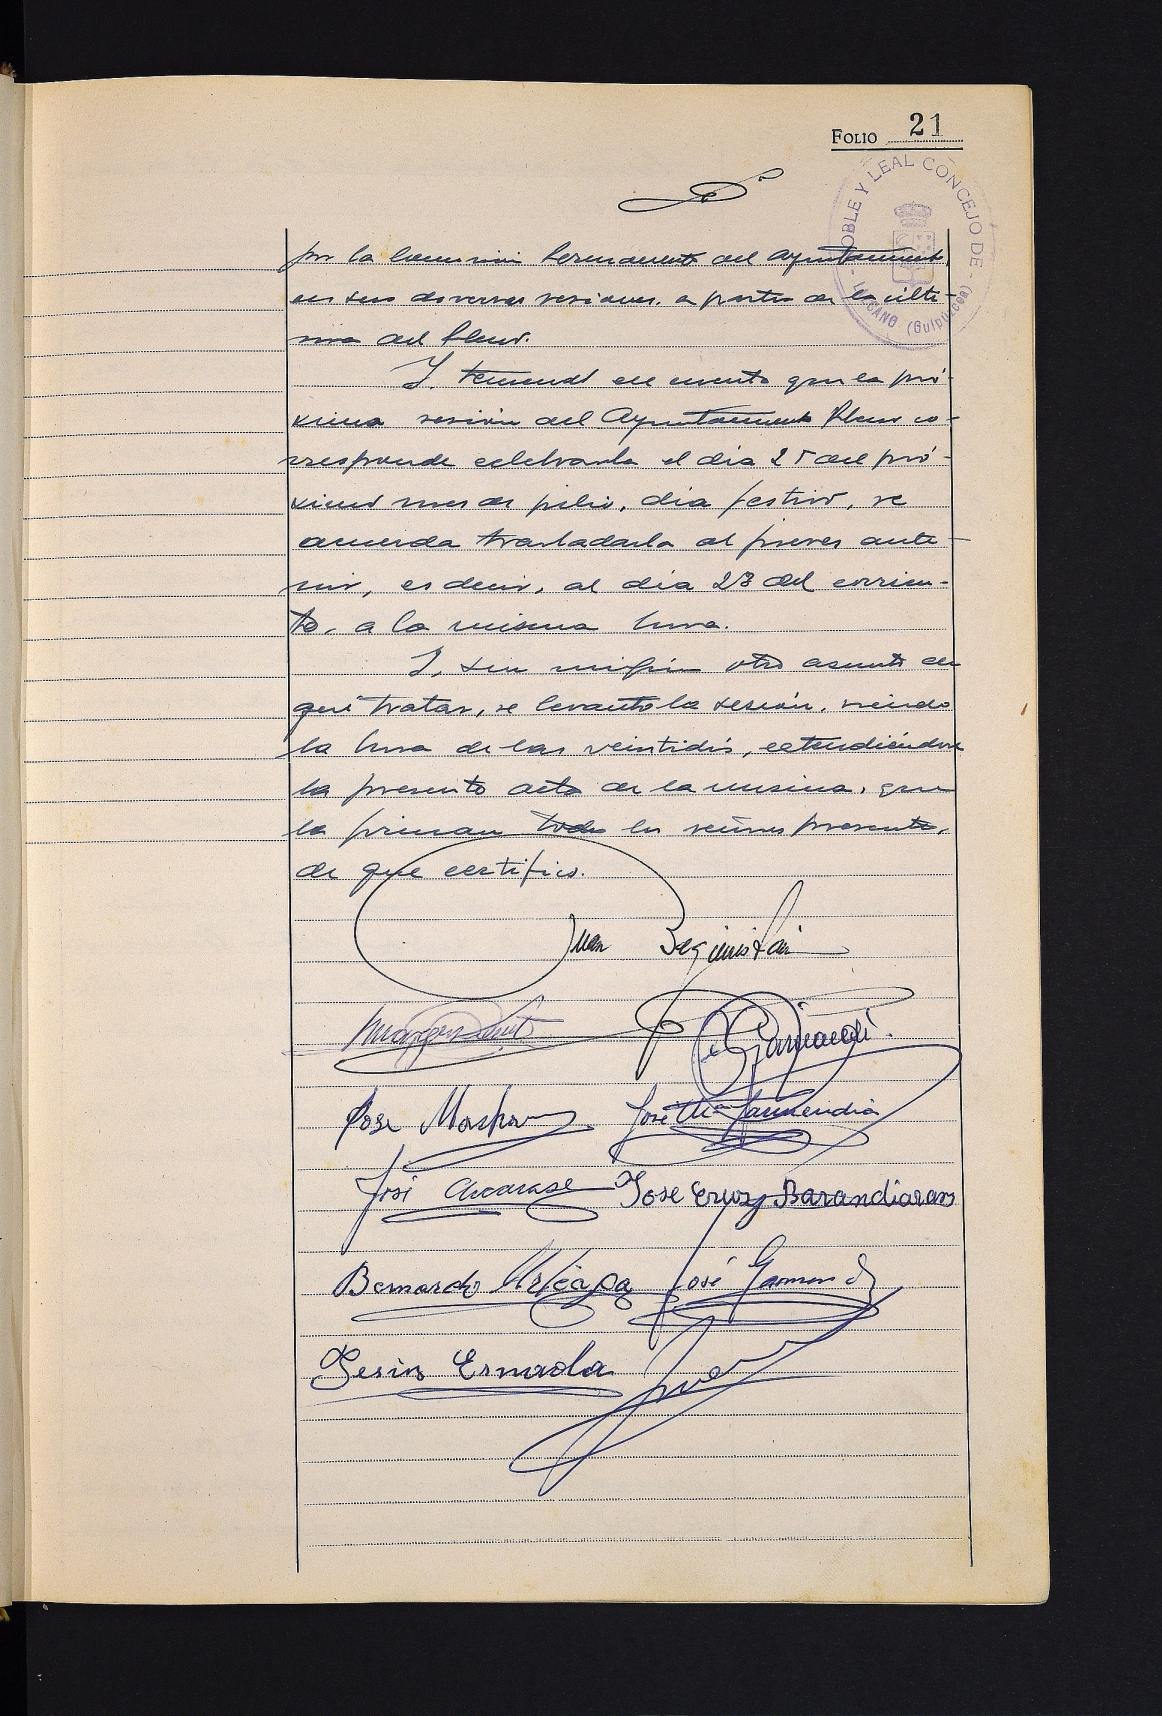 FOLIO 21
NOBLE Y LEAL CONCEJO DE
LAZCANO (Guipúzcoa)
por la Comisión Permanente del Ayuntamiento,
en sus diversas sesiones, a partir de la últi-
ma del Pleno.
Y teniendo en cuenta que la pró-
xima sesión del Ayuntamiento Pleno co-
rresponde celebrarla el día 25 del pró-
ximo mes de julio, día festivo, se
acuerda trasladarla al jueves ante-
rior, es decir, al día 23 del corrien-
te, a la misma hora.
Y, sin ningún otro asunto de
qué tratar, se levantó la sesión, siendo
la hora de las veintidós, extendiéndose
la presente acta de la misma, que
la firman todos los señores presentes,
de que certifico.
Juan Beguiristain
José María Garmendia
José
José Cruz Barandiaran
Bernardo Urteaga José Garmendi
Jesús